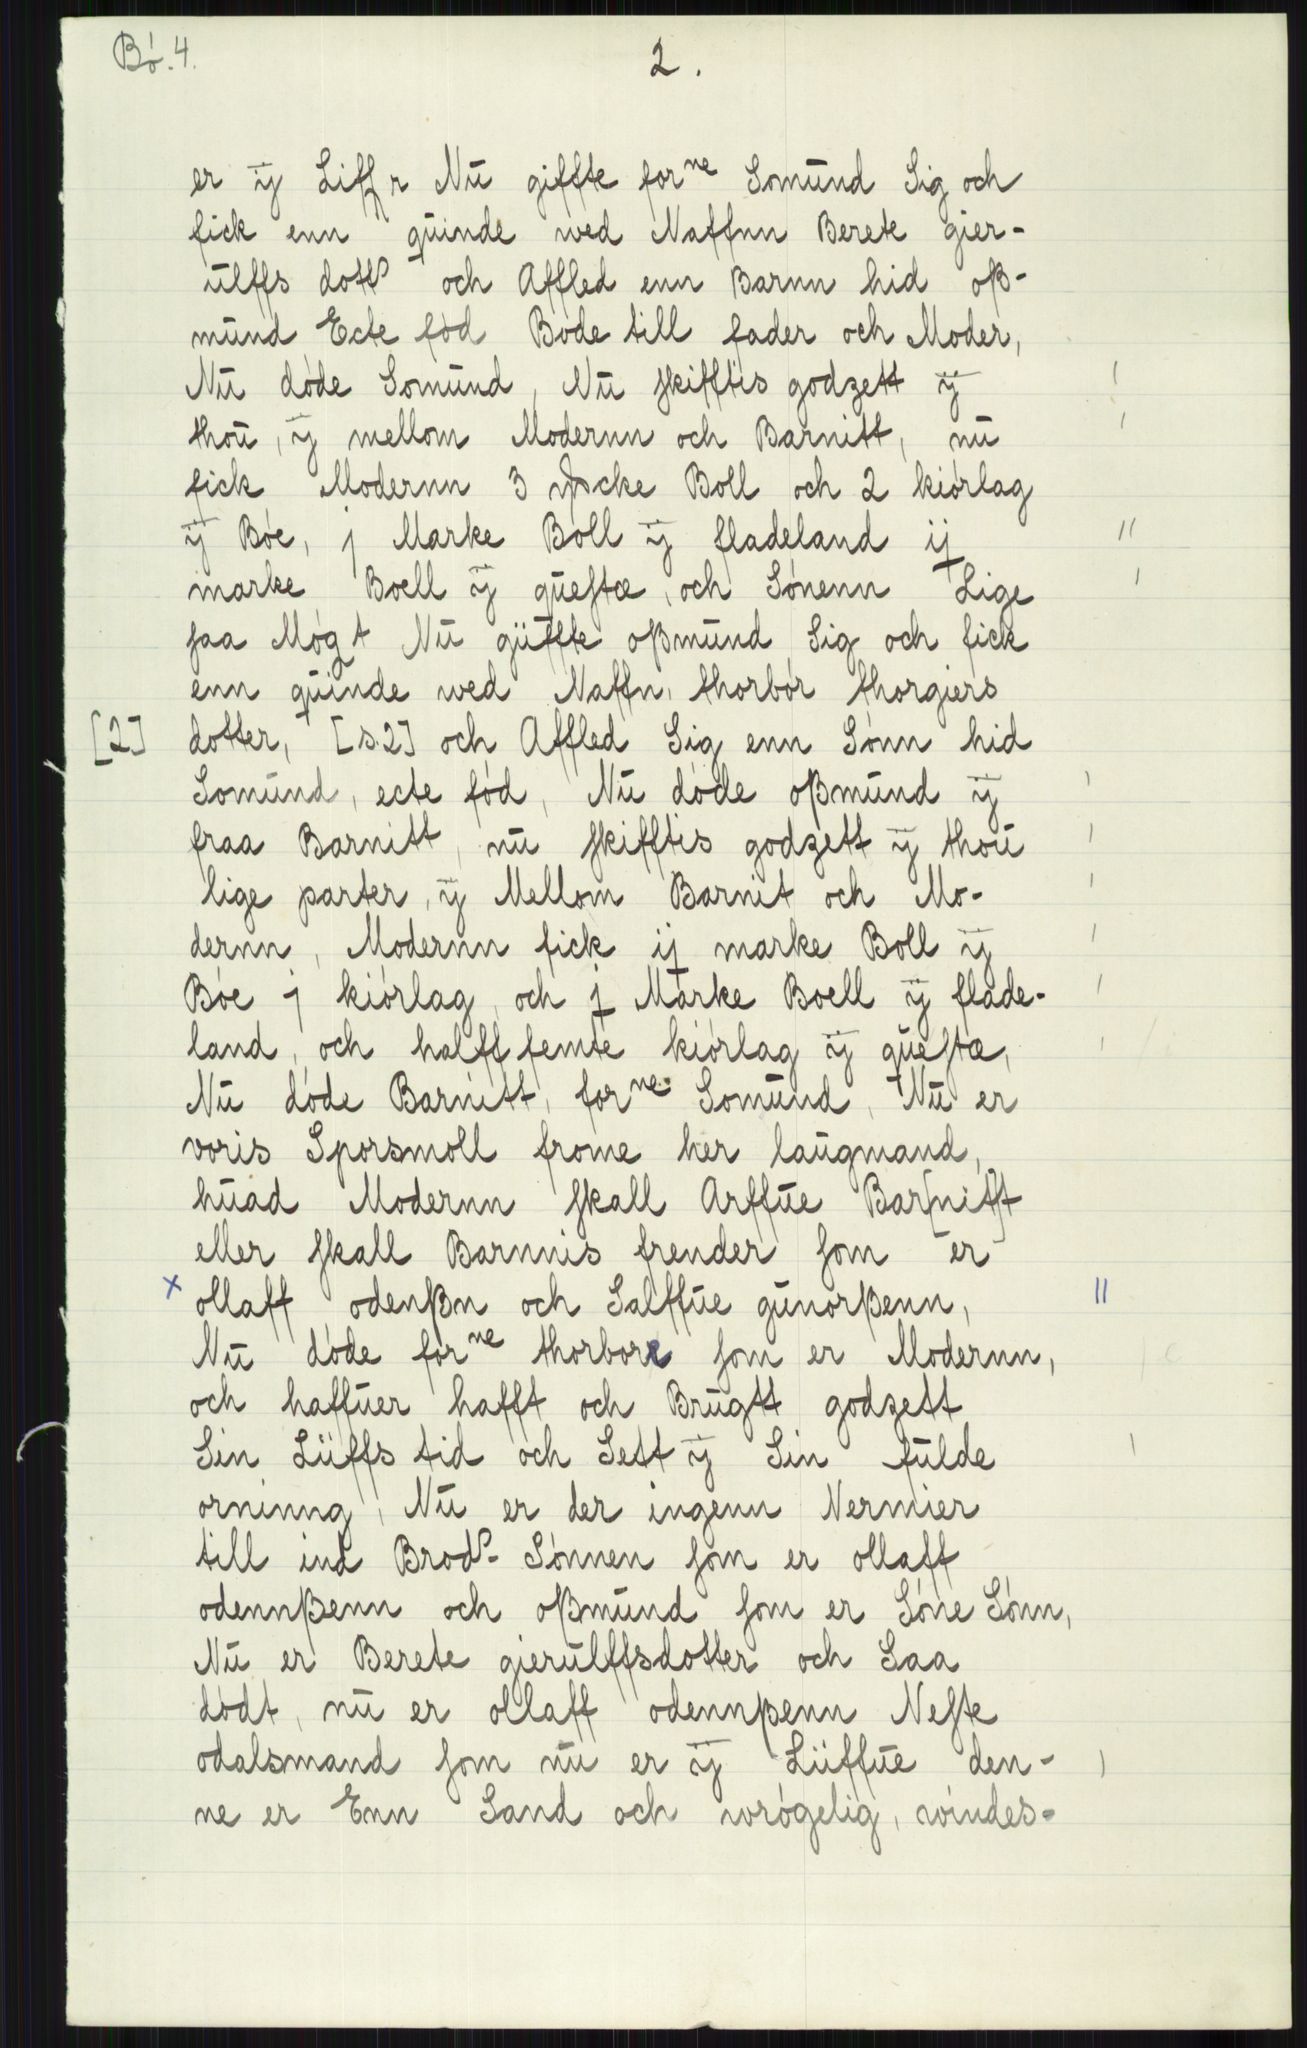 Bó. 4.
2.
er ÿ Liff r Nŭ giffte for^ne Somŭnd Sig och
fick enn qŭinde wed Naffnn Berete gier-
ŭlffs dott^s och Affled enn Barnn hid oß-
mŭnd Ecte fód Bode till fader och Moder,
Nŭ dóde Somŭnd, Nŭ skifftis godzett ÿ
thoŭ, ÿ mellom Modernn och Barnitt, nŭ
fick Modernn 3 Boll och 2 kiórlag
ÿ Bóe, j Marke Boll ÿ fladeland ij
marke Boell ÿ qŭestæ, och Sónenn Lige
saa Mógt Nŭ güffte oßmŭnd Sig och fick
enn qŭinde wed Naffn, thorbór thorgiers
[2] dotter, [s.2] och Affled Sig enn Sónn hid
Somŭnd, ecte fód, Nŭ dóde oßmŭnd ÿ
fraa Barnitt, nŭ skifftis godzett ÿ thoŭ
lige parter, ÿ Mellom Barnit och Mo-
dernn, Modernn fick ij marke Boll ÿ
Bóe j kiórlag, och j Marke Boell ÿ flade-
land, och halff femte kiórlag ÿ qŭestæ,
Nŭ dóde Barnitt, for^ne Somŭnd, Nŭ er
voris Sporsmoll frome her laŭgmand,
hŭad Modernn skall Arffŭe Bar[nit]t
eller skall Barnnis frender som er
x ollaff odenßn och Salffŭe gŭnorßenn,
Nŭ dóde for^ne thorbore som er Modernn,
och haffŭer hafft och Brŭgtt godzett
Sin Lüffs tid och Sett ÿ Sin fŭlde
orninng, Nŭ er der ingenn Nermier
till ind Brod^s- Sónnen som er ollaff
odennßenn och oßmŭnd som er Sóne Sónn,
Nŭ er Berete gierŭlffsdotter och Saa
dódt, nŭ er ollaff odennßenn Neste
odalsmand som nŭ er ÿ Lüffŭe den-
ne er Enn Sand och wrógelig, windes-